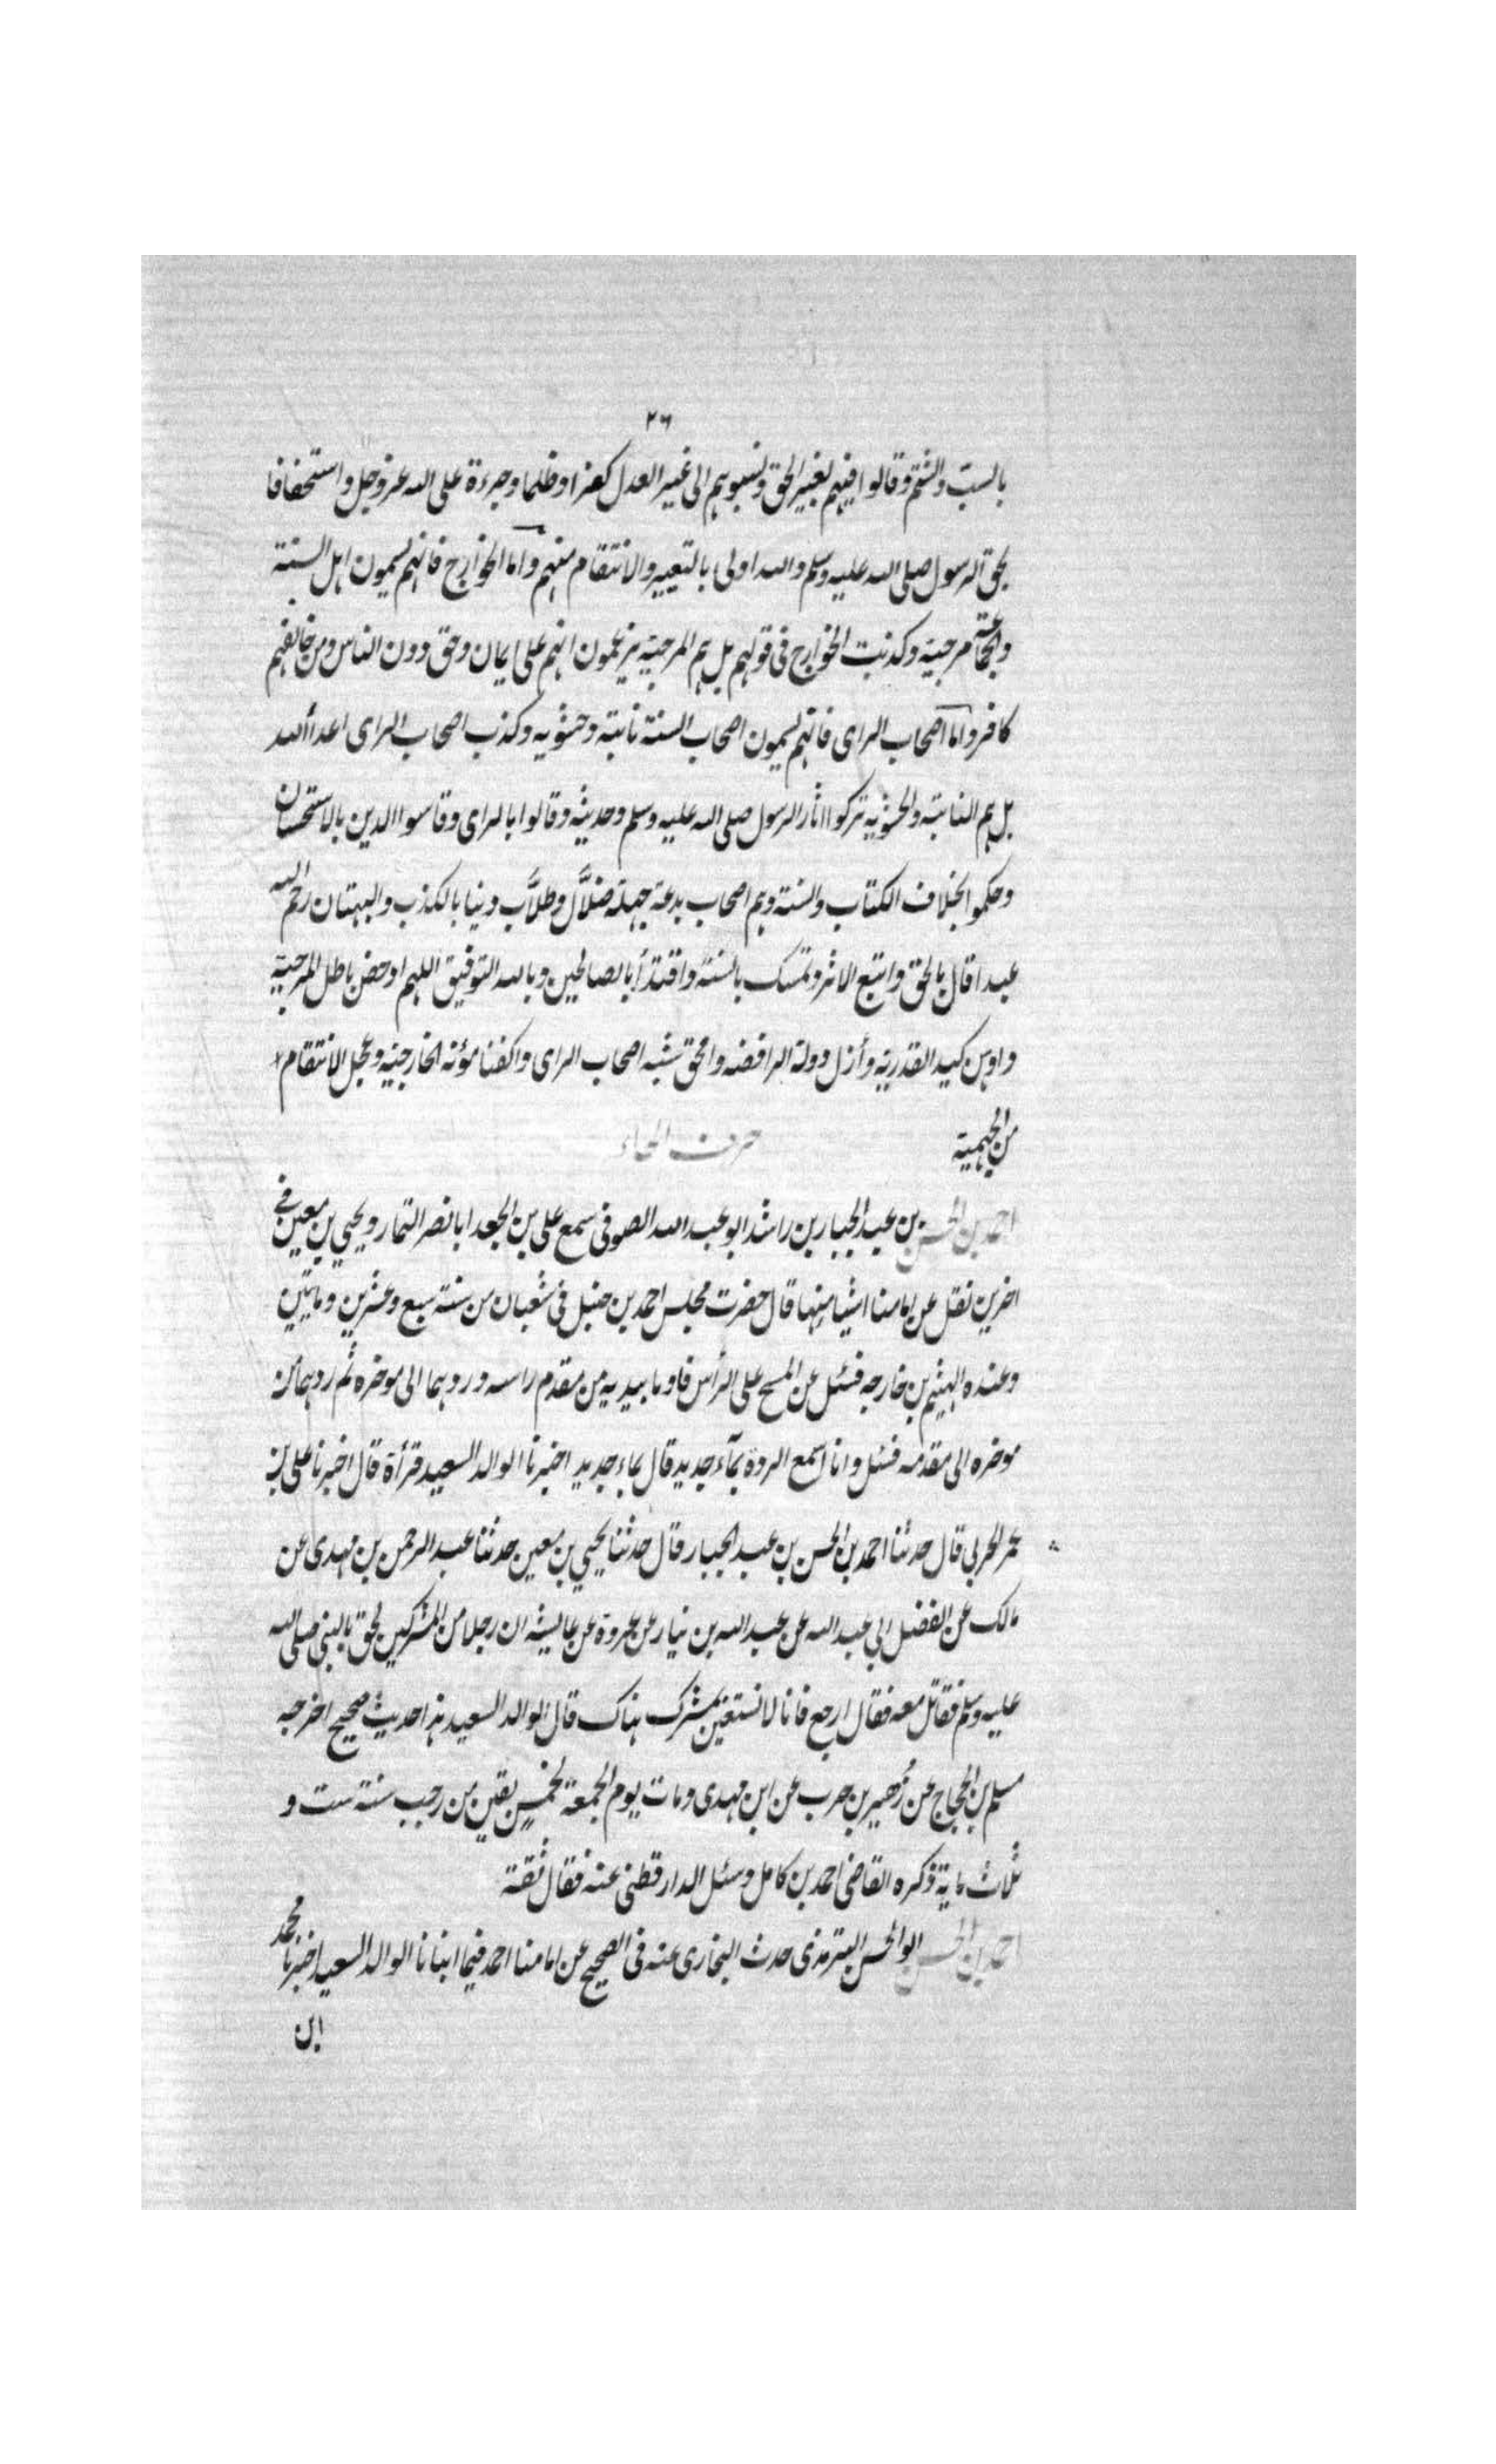 ٢٦
بالسب والشتم وقالوا فيهم بغير الحق ونسبوهم الى غير العدل كفرا وظلما وجرءة على الله عز وجل واستخفافا
بحق الرسول صلى الله عليه وسلم والله اولى بالتعيير والانتقام منهم واما الخوارج فانهم يسمون اهل السنة
والجماعة مرجية وكذبت الخوارج فى قولهم بل هم المرجية يزعمون انهم على ايمان وحق دون الناس ومن خالفهم
كافر واما اصحاب الراى فانهم يسمون اصحاب السنة نابتة وحشويه وكذب اصحاب الراى اعداالله
بل هم النابتة والحشويه تركوا اثار الرسول صلى الله عليه وسلم وحديثه وقالوا بالراى وقاسوا الدين بالاستحسان
وحكموا بخلاف الكتاب والسنة وهم اصحاب بدعة جهلة ضلاَّل وطلاَّب دنيا بالكذب والبهتان رحم الله
عبدا قال بالحق واتبع الاثر وتمسك بالسنة واقتدأ بالصالحين وبالله التوفيق اللهم ادحض باطل المرجية
واوهن كيد القدرية وأزل دولة الرافضه وامحق شبه اصحاب الراى واكفنا مؤنة الخارجية وعجل الانتقام
من الجهمية
حرف الحاء
احمد بن الحسن بن عبد الجبار بن راشد ابو عبد الله الصوفى سمع على بن الجعد ابا نصر التمار ويحيى بن معين فى
اخرين نقل عن امامنا اشيا منها قال حضرت مجلس احمد بن حنبل فى شعبان من سنة سبع وعشرين وماتين
وعنده الهيثم بن خارجه فسئل عن المسح على الرأس فاوما بيديه من مقدم راسه وردهما الى موخره ثم ردهما من
موخره الى مقدمه فسئل وانا اسمع الردة بمآء جديد قال بماء جديد اخبرنا الوالد السعيد قرأة قال اخبرنا على بن
عمر الحربى قال حدثنا احمد بن الحسن بن عبد الجبار قال حدثنا يحيى بن معين حدثنا عبد الرحمن بن مهدى عن
مالك عن الفضل ابي عبد الله عن عبد الله بن نيار عن عروة عن عايشه ان رجلا من المشركين لحق بالنبى صلى الله
عليه وسلم فقاتل معه فقال ارجع فانا لا نستعين بمشرك هناك قال الوالد السعيد هذا حديث صحيح اخرجه
مسلم بن الحجاج عن زُهير بن حرب عن ابن مهدى ومات يوم الجمعة لخمسٍ بقين من رجب سنة ست و
ثلاث ماية ذكره القاضى احمد بن كامل وسئل الدارقطنى عنه فقال ثقة
احمد بن الحسن ابو الحسن الترمذى حدث البخارى عنه فى الصحيح عن امامنا احمد فيما انبانا الوالد السعيد اخبرنا محمد
ابن